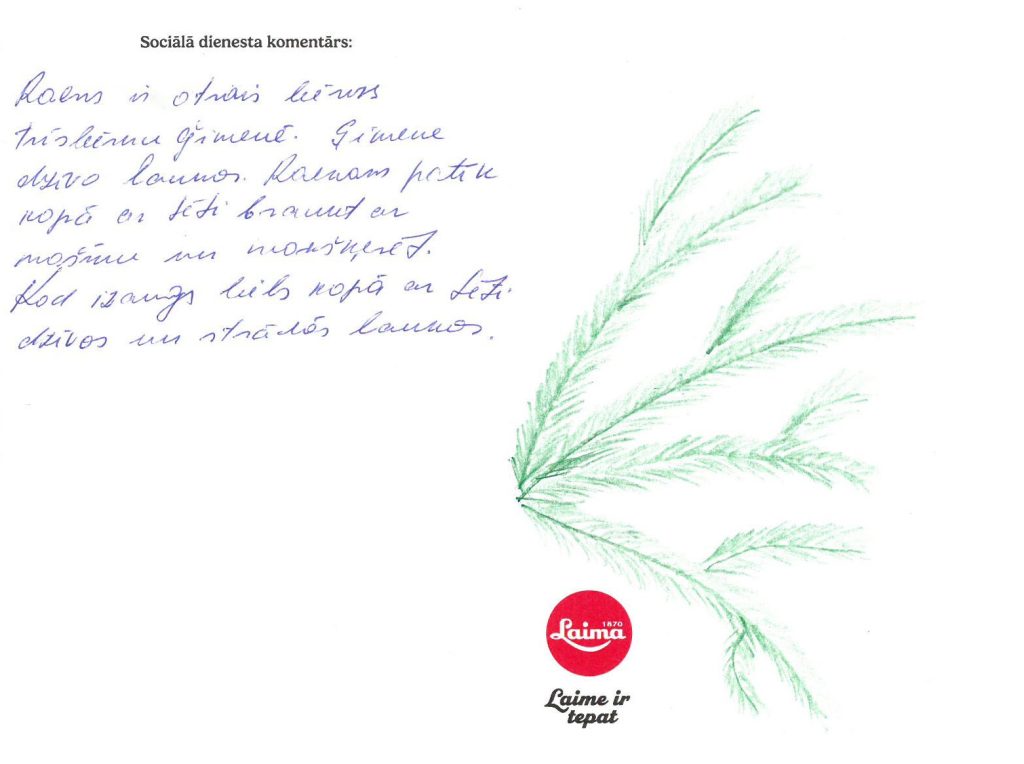 Sociālā dienesta komentārs:
ir otrais bērns
trīsbērnu ģimenē. Ģimene
dzīvo laukos. patīk
kopā ar tēti braukt ar
mašīnu un makšķerēt.
Kad izaugs liels kopā ar tēti
dzīvos un strādās laukos.
1870
Laima
Laime ir
tepat